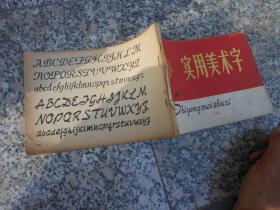 ABCDEFGHIJKLM
NOPQRSTUVWXYZ
abcdefghijklmnopqrstuvwxyz
ABCDEFGHIJKLM
NOPQRSTUVWXYZ
abcdefghijklmnopqrstuvwxyz
实用美术字
Shiyongmeishuzi